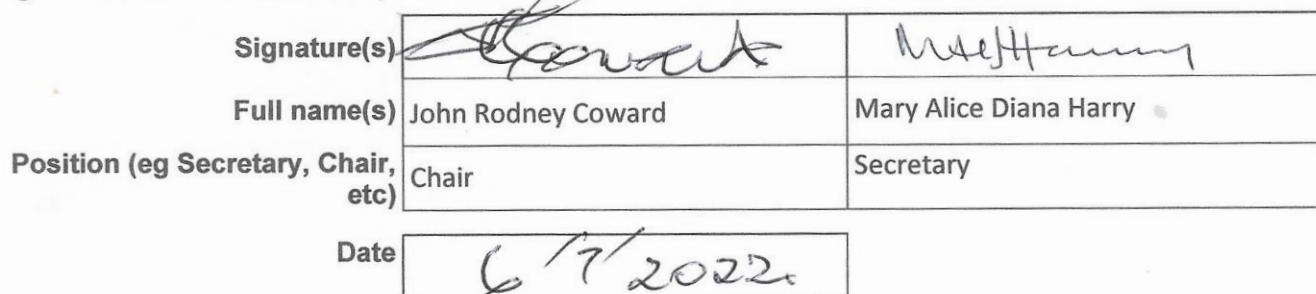 Signature(s)
Full name(s) John Rodney Coward Mary Alice Diana Harry
Position (eg Secretary, Chair, etc) Chair Secretary
Date 6/7/2022.